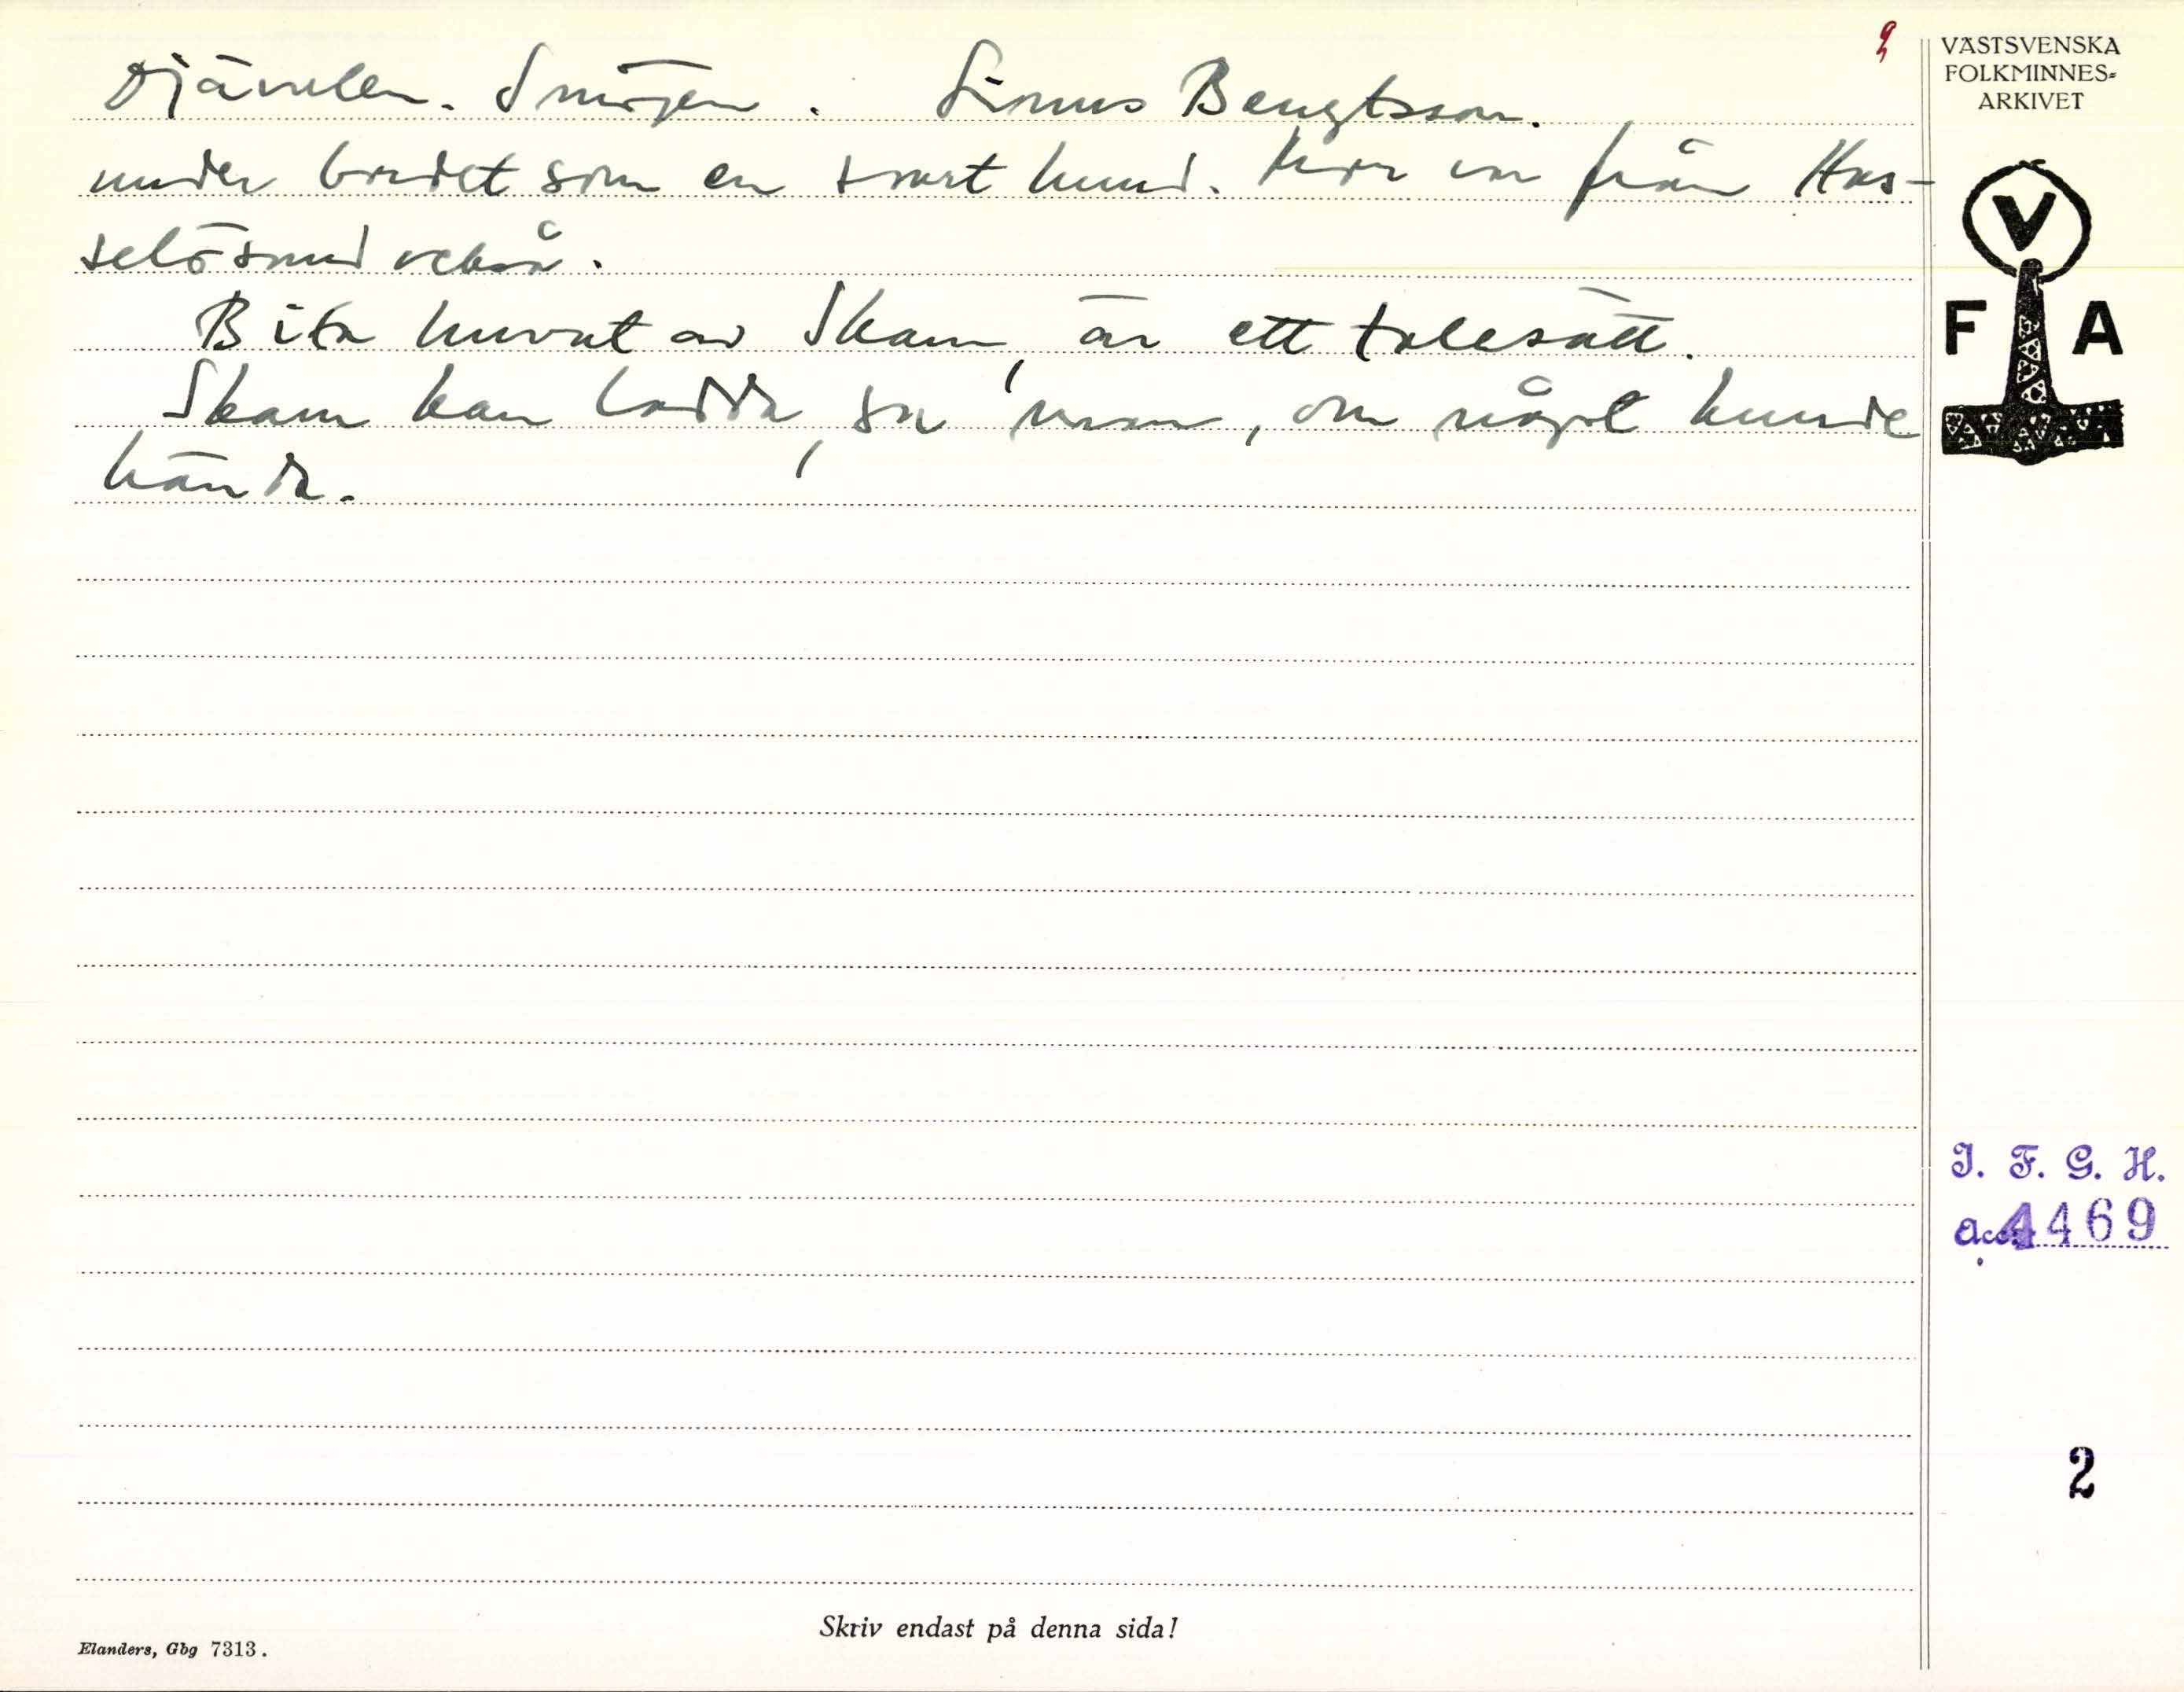 Djävulen. Smögen. Linus Bengtsson.
2
under bordet som en svart hund. Hon var från Has-
selösund också.
Bita huvut av Skam, är ett talesätt.
Skam kan ladda, sa man, om något kunde
hända.
VÄSTSVENSKA
FOLKMINNES-
ARKIVET
V
F A
I. F. G. H.
Acc. 4469
2
Skriv endast på denna sida!
Elanders, Gbg 7313.